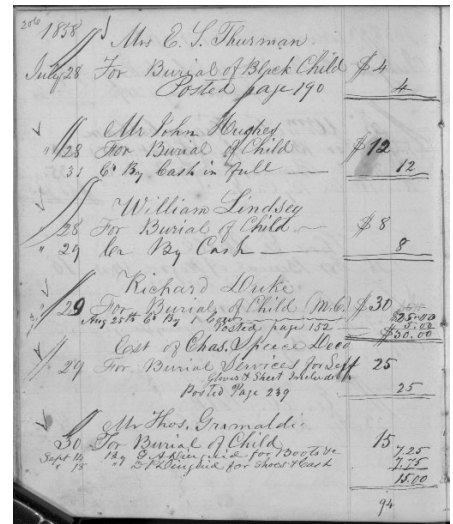 206
1858
Mrs E. S. Thurman.
July 28 For Burial of Black Child $ 4
Posted page 190 4
Mr John Hughes
" 28 For Burial of Child $ 12
31 Cr By Cash in full 12
William Lindsey
28 For Burial of Child $ 8
" 29 Cr By Cash 8
Richard Duke
" 29 For Burial of Child (M.C.) $ 30
Aug 25th Cr By 25.00
Posted page 152 5.00
$30.00
Est of Chas. Spence Decd
29 For Burial Services for Self 25
Gloves & Sheet Included
Posted Page 239 25
Mr Thos. Grimaldi
30 For Burial of Child 15
Sept 14 By Diuguid for Boots &c 7.25
" 15 " Diuguid for Shoes & Cash 7.75
15.00
94